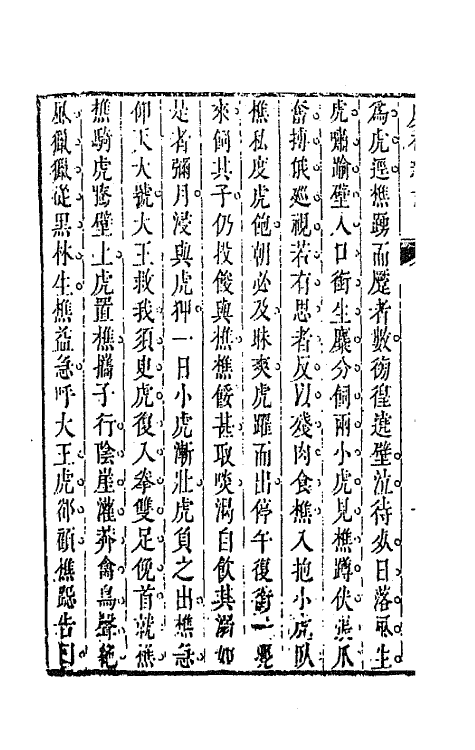 爲虎逕樵踴而蹷者數彷徨遶壁泣待死日落風生
虎嘯踰壁入口銜生麋分飼兩小虎見樵蹲伏張爪
奮搏俄巡視若有思者反以殘肉食樵入抱小虎臥
樵私度虎飽朝必及昧爽虎躍而出停午復銜一麂
來飼其子仍投餕與樵樵餒甚取啖渴自飲其溺如
是者彌月浸與虎狎一日小虎漸壯虎負之出樵急
仰天大號大王救我須臾虎復入拳雙足俛首就樵
樵騎虎騰壁上虎置樵攜子行陰崖灌莽禽鳥聲絶
風獵獵從黑林生樵益急呼大王虎卻顧樵跽告曰